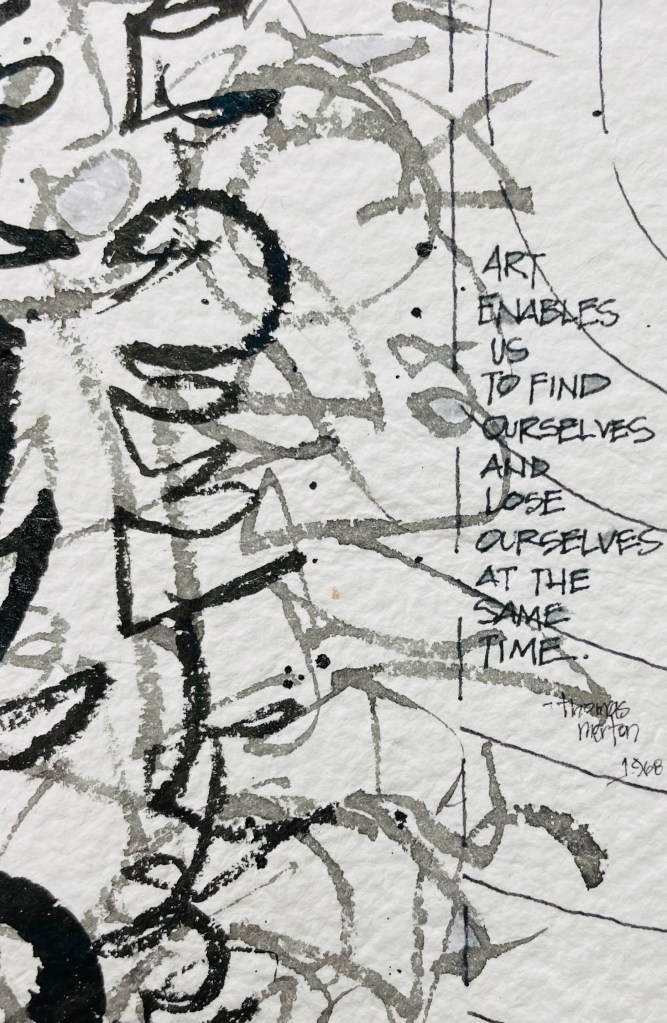 ART
ENABLES
US
TO FIND
OURSELVES
AND
LOSE
OURSELVES
AT THE
SAME
TIME.
- thomas
merton
1968